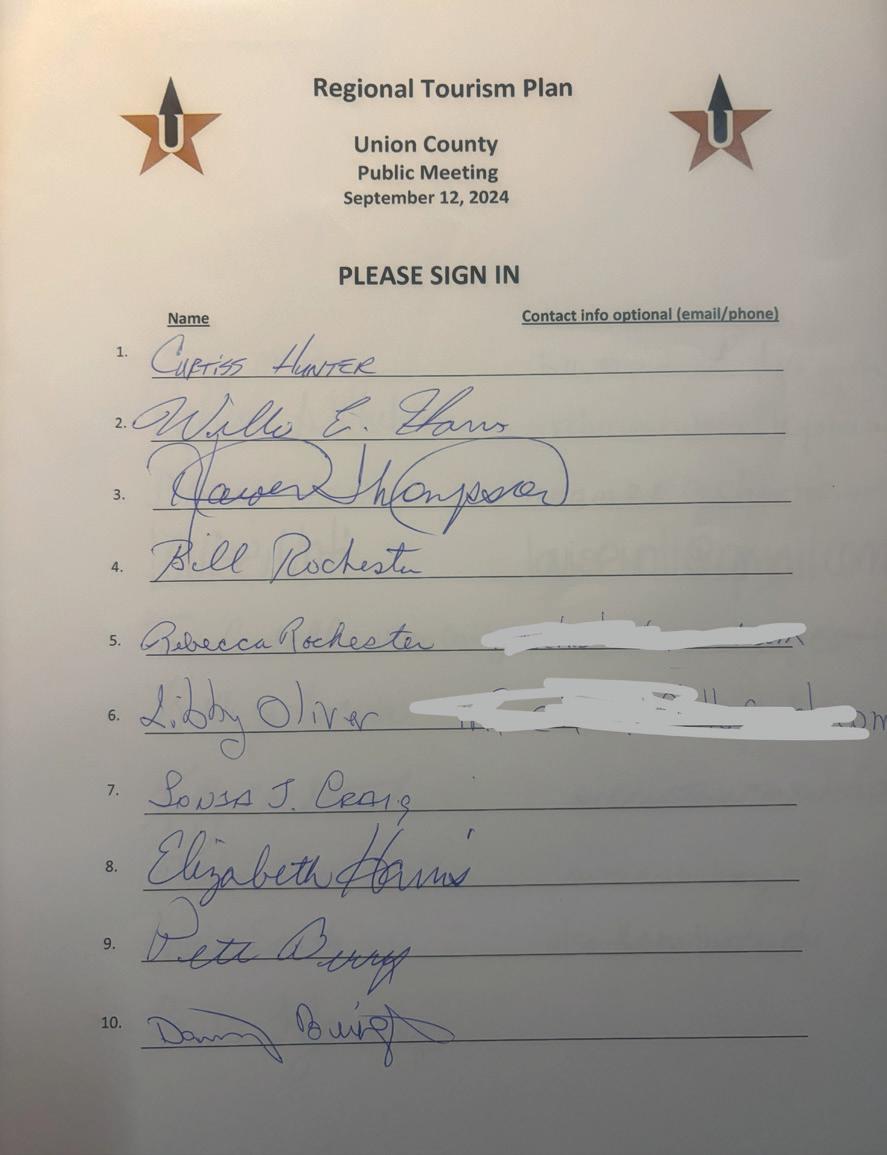 U U
Regional Tourism Plan
Union County
Public Meeting
September 12, 2024
PLEASE SIGN IN
Name Contact info optional (email/phone)
1. CURTISS HUNTER
2. E.
3. Thompson
4. Bill Rochester
5. Rebecca Rochester
6. Libby Oliver
7. SONJA J. CRAIG
8. Elizabeth Harris
9. Pete Berry
10. Danny